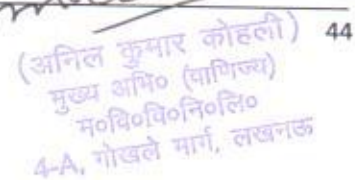 44
(अनिल कुमार कोहली)
मुख्य अभि० (वाणिज्य)
म०वि०वि०नि०लि०
4-A, गोखले मार्ग, लखनऊ